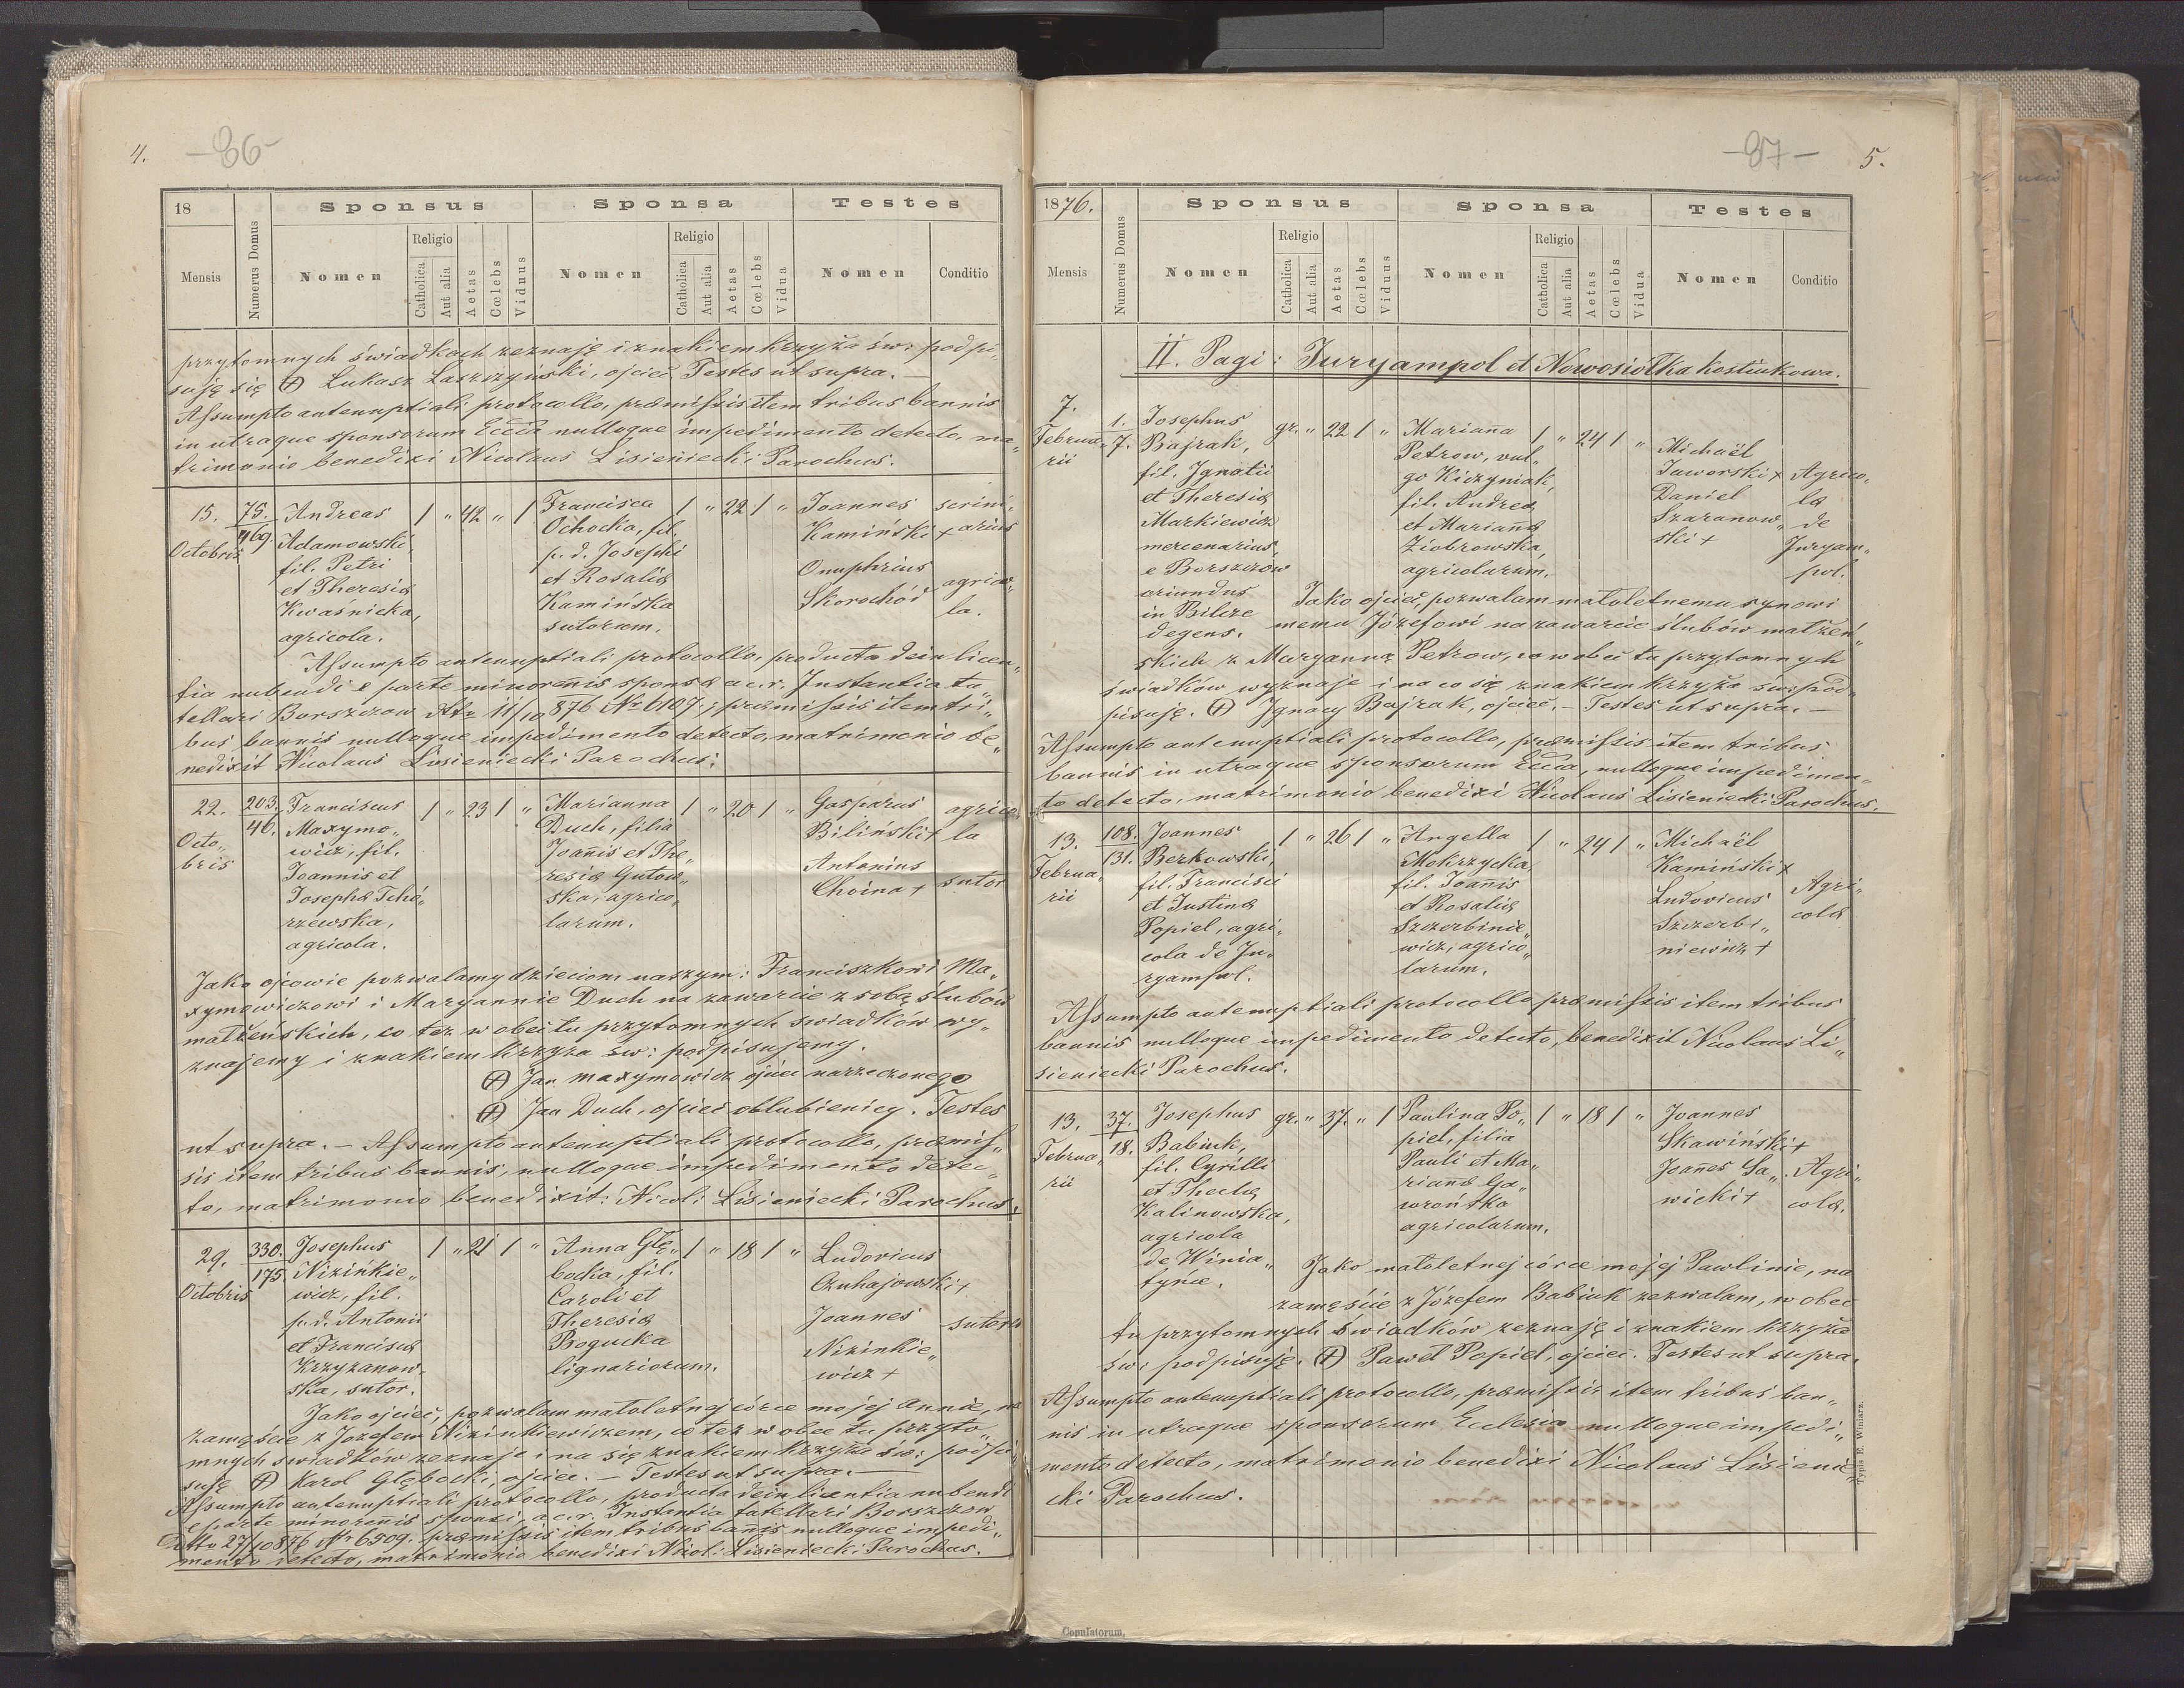 4.
-86-
18
Sponsus
Sponsa
Testes
Mensis
Numerus Domus
Nomen
Religio
Catholica
Aut alia
Aetas
Cœlebs
Viduus
Nomen
Religio
Catholica
Aut alia
Aetas
Cœlebs
Vidua
Nomen
Conditio
przytomnych świadkach zeznaję i znakiem Krzyża św: podpi„
suję się (+) Łukasz Laszczyński, ojciec. Testes ut supra.—
Assumpto antenuptiali protocollo, præmissis item tribus bannis
in utraque sponsorum Eccla nulloque impedimento detecto, ma„
trimonio benedixi Nicolaus Lisieniecki Parochus.
15.
Octobris
75.
469.
Andreas
Adamowski,
fil. Petri
et Theresiæ
Kwaśnicka,
agricola.
1 " 42 " 1
Francisca
Ochocka, fil.
p. d. Josephi
et Rosaliæ
Kamińska
sutorum.
1 " 22 1 "
Joannes
Kamiński +
Onuphrius
Skorochód
scrini„
arius
agrico„
la.
Assumpto antenuptiali protocollo, producta dein licen„
tia nubendi e parte minorennis sponsæ a c. r. Instantia tu„
tellari Borszczow dtto 11/10 876 Nr 6107; præmissis item tri„
bus bannis nulloque impedimento detecto, matrimonio be„
nedixit Nicolaus Lisieniecki Parochus.
22.
Octo„
bris
203.
46.
Franciscus
Maxymo„
wicz, fil.
Joannis et
Josephæ Tchó„
rzewska,
agricola.
1 " 23 1 "
Marianna
Duch, filia
Joañis et The„
resiæ Gutow„
ska, agrico„
larum.
1 " 20 1 "
Gasparus
Biliński +
Antonius
Choina +
agrico„
la
sutor
Jako ojcowie pozwalamy dzieciom naszym: Franciszkowi Ma„
xymowiczowi i Maryannie Duch na zawarcie z sobą ślubów
małżeńskich, co też w obec tu przytomnych świadków wy„
znajemy i znakiem Krzyża św: podpisujemy.
(+) Jan Maxymowicz ojciec narzeczonego
(+) Jan Duch, ojciec oblubienicy. Testes
ut supra. — Assumpto antenuptiali protocollo, præmis„
sis item tribus bannis, nulloque impedimento detec„
to, matrimonio benedixit: Nicol: Lisieniecki Parochus.
29.
Octobris
330.
175
Josephus
Nizińkie„
wicz, fil.
p. d. Antonii
et Franciscæ
Krzyżanow„
ska, sutor.
1 " 21 1 "
Anna Głę„
bocka, fil.
Caroli et
Theresiæ
Bogucka
lignariorum.
1 " 18 1 "
Ludovicus
Czuhajowski +
Joannes
Nizinkie„
wicz +
sutores
Jako ojciec, pozwalam małoletnej córce mojej Annie, na
zamęście z Józefem Nizinkiewiczem, co też w obec tu przyto„
mnych świadków zeznaję i na się znakiem Krzyża św: podpi„
suję (+) Karol Głębocki, ojciec. — Testes ut supra.—
Assumpto antenuptiali protocollo, producta dein licentia nubendi
e parte minorennis sponsi, a c. r. Instantia tutellari Borszczow
dtto 27/10 876 Nr 6509. præmissis item tribus bannis nulloque impedi„
mento detecto, matrimonio benedixi Nicol: Lisieniecki Parochus.
-87-
5.
1876.
Sponsus
Sponsa
Testes
Mensis
Numerus Domus
Nomen
Religio
Catholica
Aut alia
Aetas
Cœlebs
Viduus
Nomen
Religio
Catholica
Aut alia
Aetas
Cœlebs
Vidua
Nomen
Conditio
II. Pagi: Juryampol et Nowosiółka kostiukowa.
7.
Februa„
rii
1.
7.
Josephus
Bajrak,
fil. Ignatii
et Theresiæ
Markiewicz
mercenarius,
e Borszczow
oriundus
in Bilcze
degens.
gr. " 22 1 "
Mariaña
Petrow, vul„
go Kiczyniak,
fil. Andreæ
et Mariannæ
Ziobrowska,
agricolarum.
1 " 24 1 "
Michaël
Jaworski +
Daniel
Szaranow„
ski +
Agrico„
læ
de
Juryam„
pol.
Jako ojciec, pozwalam małoletnemu synowi
memu Józefowi na zawarcie ślubów małżeń„
skich z Maryanną Petrow, co w obec tu przytomnych
świadków wyznaję i na co się znakiem Krzyża św: pod„
pisuję. (+) Ignacy Bajrak, ojciec. — Testes ut supra.—
Assumpto antenuptiali protocollo, præmissis item tribus
bannis in utraque sponsorum Eccla, nulloque impedimen„
to detecto, matrimonio benedixi Nicolaus Lisieniecki Parochus.
13.
Februa„
rii
108.
131.
Joannes
Berkowski,
fil. Francisci
et Justinæ
Popiel, agri„
cola de Ju„
ryampol.
1 " 26 1 "
Angella
Mokrzycka,
fil. Joañis
et Rosaliæ
Szczerbinie„
wicz, agrico„
larum.
1 " 24 1 "
Michaël
Kamiński +
Ludovicus
Szczerbi„
niewicz +
Agri„
colæ
Assumpto antenuptiali protocollo præmissis item tribus
bannis nulloque impedimento detecto, benedixit Nicolaus Li„
sieniecki Parochus.
13.
Februa„
rii
37.
18.
Josephus
Babiuk,
fil. Cyrilli
et Theclæ
Kalinowska,
agricola
de Winia„
tyńce.
gr. " 37. " 1
Paulina Po„
piel, filia
Pauli et Ma„
riannæ Ga„
wrońska
agricolarum.
1 " 18 1 "
Joannes
Skawiński +
Joañes Sa„
wicki +
Agri„
colæ.
Jako małoletnej córce mojej Pawlinie, na
zamęście z Józefem Babiuk zezwalam, w obec
tu przytomnych świadków zeznaję i znakiem Krzyża
św: podpisuję. (+) Paweł Popiel, ojciec. Testes ut supra.
Assumpto antenuptiali protocollo, præmissis item tribus ban„
nis in utraque sponsorum Ecclesia nulloque impedi„
mento detecto, matrimonio benedixi Nicolaus Lisienie„
cki Parochus.
Typis E. Winiarz.
Copulatorum.